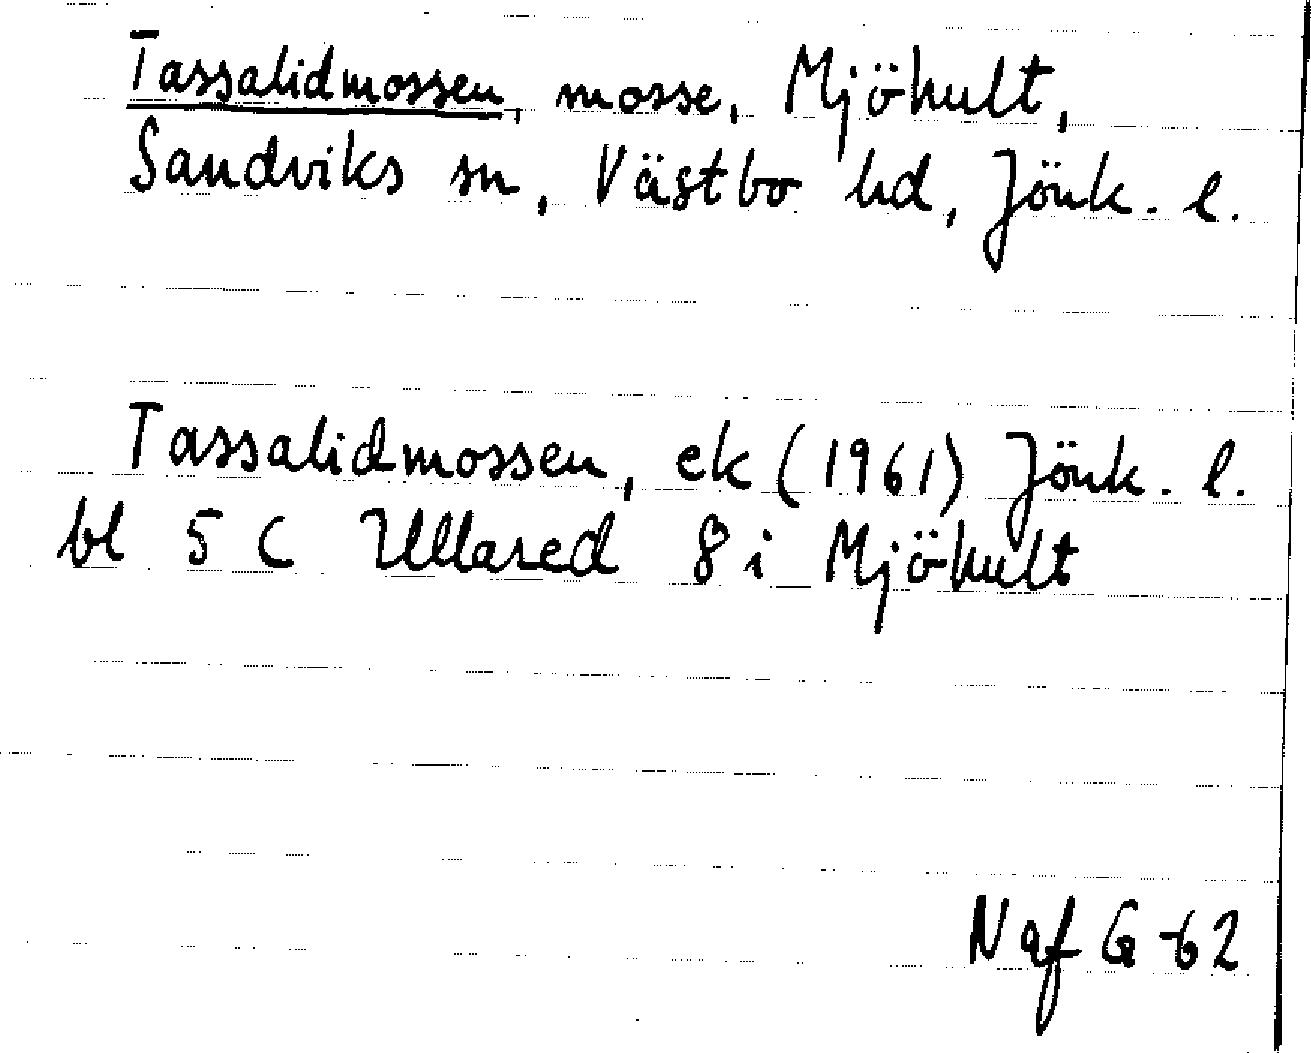 Tassalidmossen, mosse, Mjöhult,
Sandviks sn, Västbo hd, Jönk. l.
Tassalidmossen, ek (1961) Jönk. l.
bl 5 C Ullared 8 i Mjöhult
Naf G-62